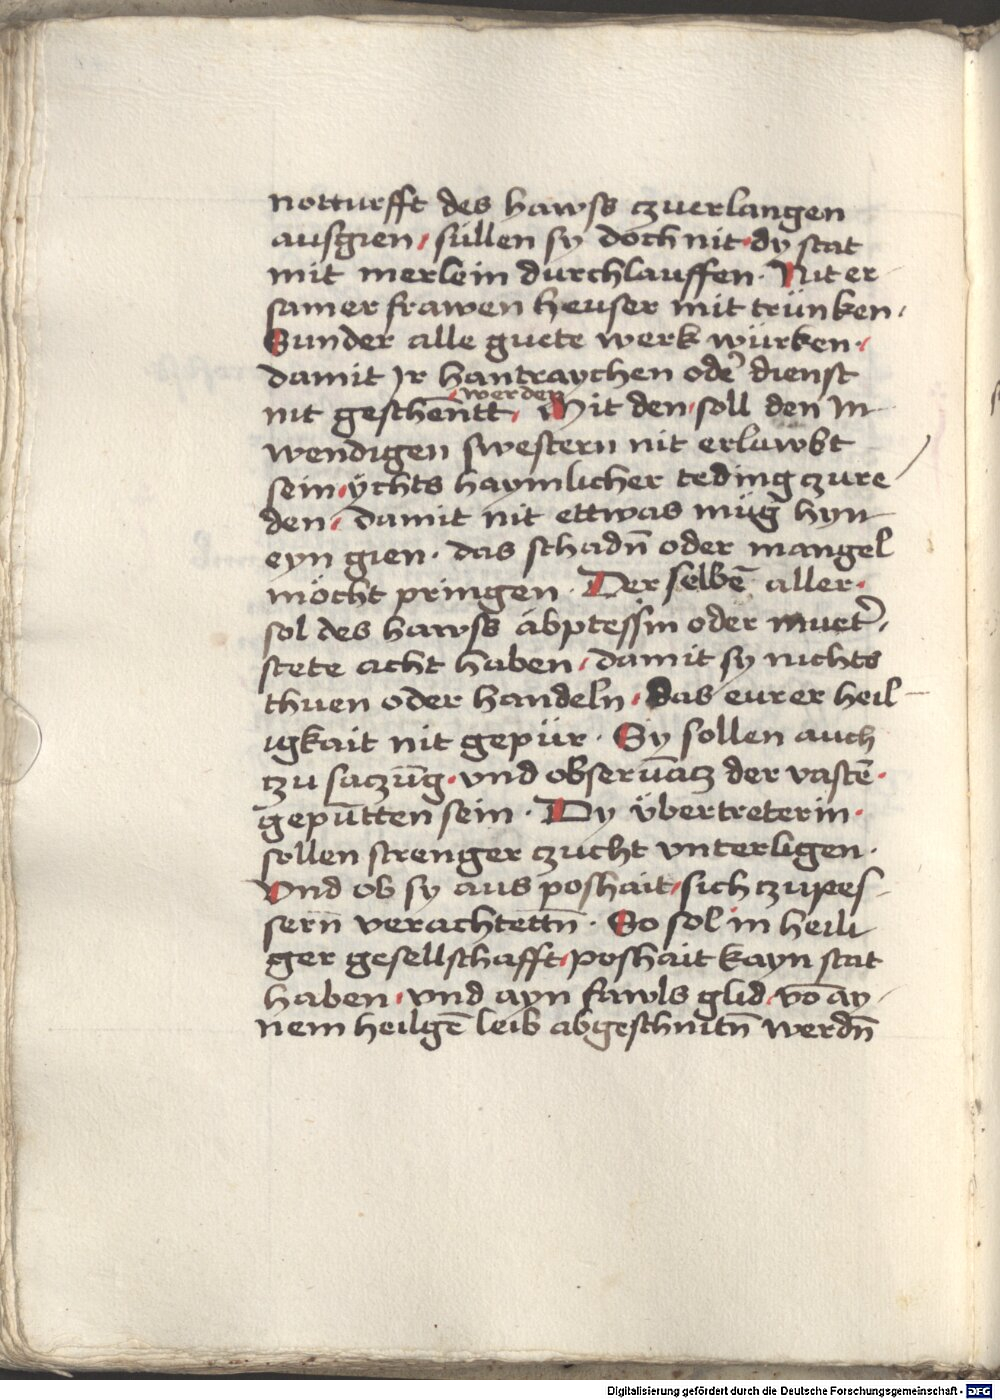 notturfft des hawss czuerlangen
ausgien / süllen sy doch nit · dy stat
mit merlein durchlauffen · Nit er
samer frawen heuser mit trünken ·
Sunder alle guete werk würken ·
damit Jr hantraychen ode᷑ dienst
nit geschēntt / werden Mit den · soll den In
wendigen swestern nit erlawbt
sein · ychts haymlicher teding czure
den / damit nit ettwas müg hyn
eyn gien · das schadn̄ oder mangel
möcht pringen · Der selbē aller ·
sol des hawss äbptessin oder muet᷑ ·
stete acht haben / damit sy nichts
thuen oder handeln · das eurer heil
igkait nit gepür · Sy sollen auch
czu saczūg · vnd obseruācz der vastē ·
gepūtten sein · Dy übertreterin ·
sollen strenger czucht vnterligen ·
Vnd ob sy aus poshait / sich czupes
sern̄ verachtettn̄ · So sol in heili
ger gesellschafft · poshait kayn stat
haben · vnd ayn fawls glid · vō ay
nem heilgē leib abgeschnitn̄ werdn̄
Digitalisierung gefördert durch die Deutsche Forschungsgemeinschaft - DFG